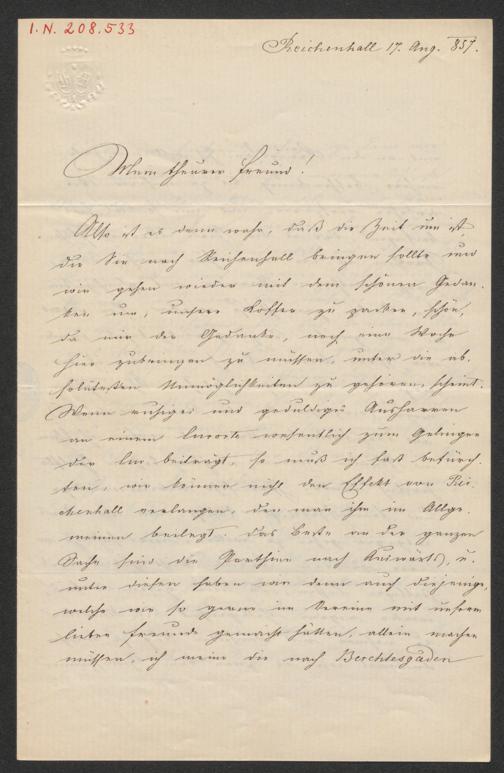 I.N. 208.533
Reichenhall 17. Aug. 857.
Mein theurer Freund!
Also ist es denn wahr, daß die Zeit um ist
die Sie nach Reichenhall bringen sollte und
wir gehen wieder mit dem schönen Gedan-
ken um, unsere Koffer zu packen, schön,
da mir der Gedanke, noch eine Woche
hier zubringen zu müssen, unter die ab-
solutesten Unmöglichkeiten zu gehören scheint.
Wenn ruhiges und geduldiges Ausharren
an einem Curorte wesentlich zum Gelingen
der Cur beiträgt, so muß ich fast befürch-
ten, wir können nicht den Effekt von Rei-
chenhall verlangen, den man ihm im Allge-
meinen beilegt. Das Beste an der ganzen
Sache sind die Parthien nach Auswärts, u.
unter diesen haben wir denn auch diejenige,
welche wir so gerne im Vereine mit unserm
lieben Freunde gemacht hätten, allein machen
müssen, ich meine die nach Berchtesgaden